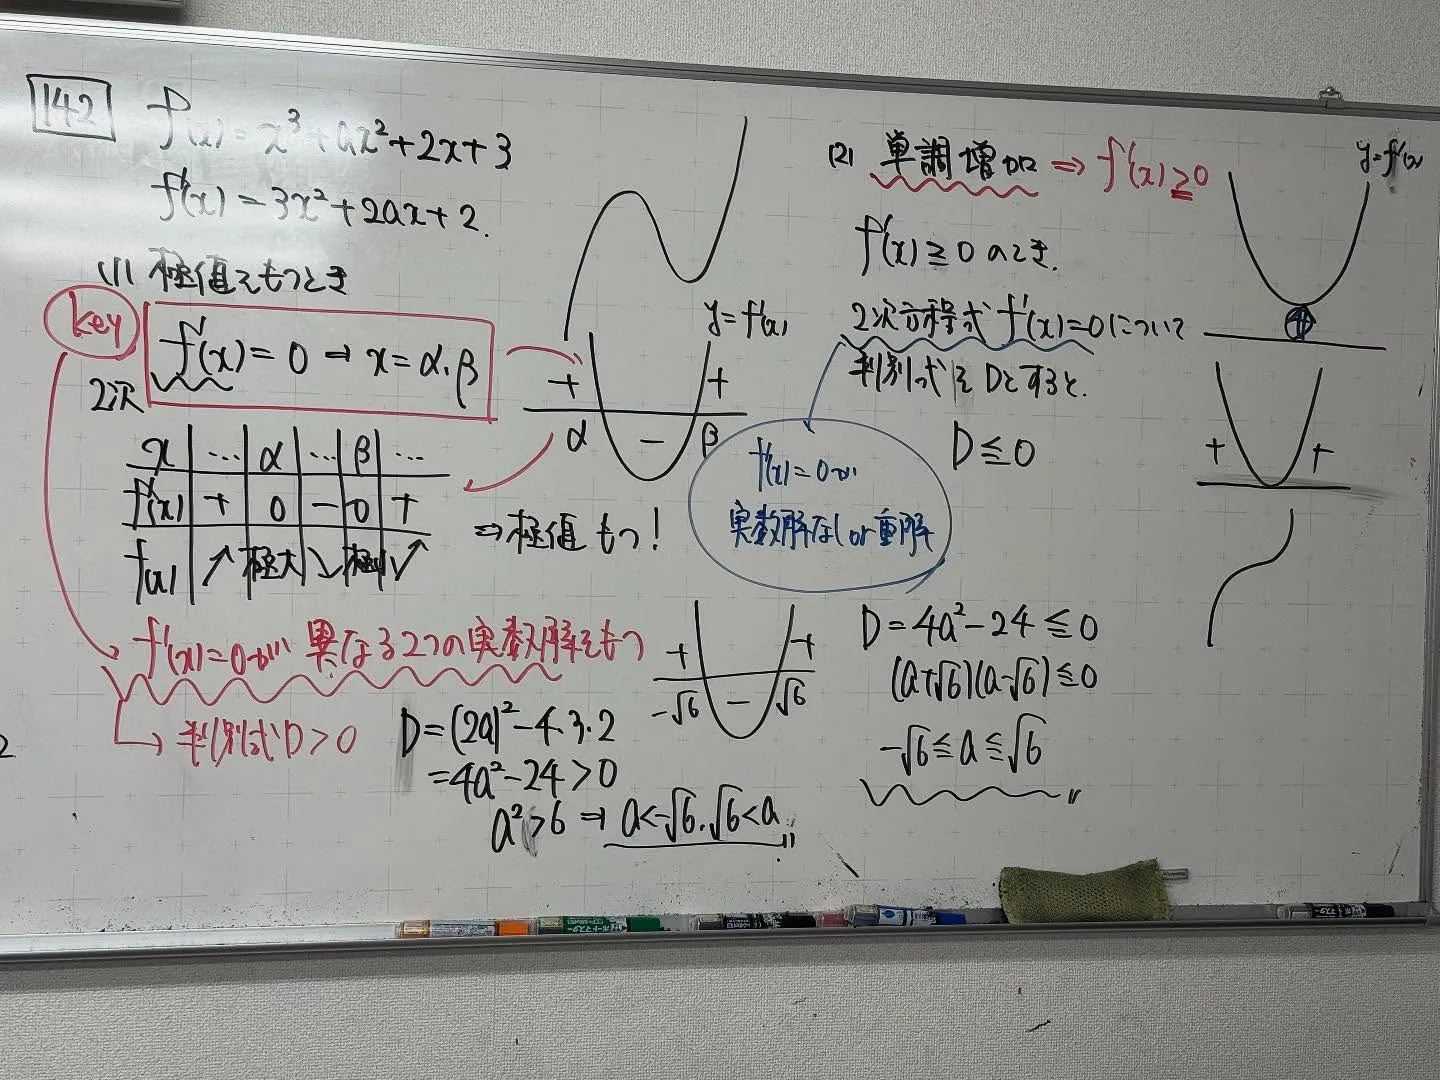 142
f(x)=x³+ax²+2x+3
f'(x)=3x²+2ax+2.
(1) 極値をもつとき
key
f'(x)=0 ⇒ x=α,β
2次
x … α … β …
f'(x) + 0 − 0 +
f(x) ↗ 極大 ↘ 極小 ↗
⇒極値もつ!
y=f'(x)
+ +
α − β
f'(x)=0が異なる2つの実数解をもつ
→ 判別式D>0
D=(2a)²−4·3·2
=4a²−24>0
a²>6 ⇒ a<-√6, √6<a
+ +
-√6 − √6
(2) 単調増加 ⇒ f'(x)≧0
f'(x)≧0のとき.
2次方程式f'(x)=0について
判別式をDとすると.
D≦0
f'(x)=0が
実数解なし or 重解
D=4a²−24≦0
(a+√6)(a-√6)≦0
-√6≦a≦√6
y=f'(x)
+
+ +
2